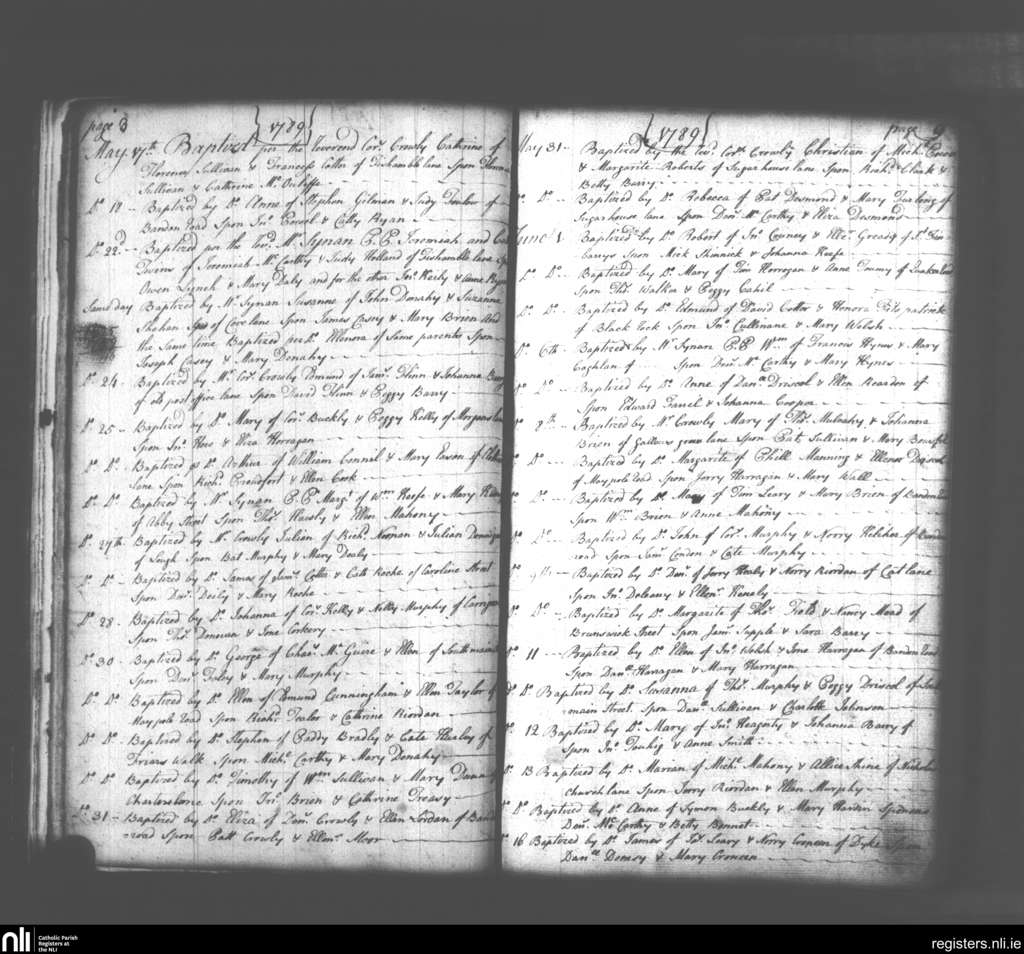 page 8
1789
May 17th Baptized per the Reverend Cors. Crowly Catherine of
Florence Sullivan & Frances Cotter of Fishamble lane Spon
Sullivan & Cathrine Mc Auliffe
Do. 18 Baptized by Do. Anne of Stephen Gilman & Judy Fowler of
Bandon Road Spon Jno. & Catty Ryan
Do. 22d Baptized per the Revd. Mr. Synan P.P. Jeremiah and
Twins of Jeremiah Mc Carthy & Judy Holland of Fishamble lane
Owen Lynch & Mary Daly and for the other Jno. Kerby & Anne
Same day Baptized by Mr. Synan Susanne of John Donahy & Susanna
Shehan of Cove lane Spon James Casey & Mary Brien And
the Same time Baptized per Do. Ellenora of Same parents Spon
Joseph Casey & Mary Donahy
Do. 24 Baptized by Mr. Cors. Crowly Edmund of James Flinn & Johanna Barry
of old post office lane Spon David Flinn & Peggy Barry
Do. 25 Baptized by Do. Mary of Cors. Buckly & Peggy Kelly of Morgans lane
Spon Jno. & Eliza Horragan
Do. Do. Baptized by Do. Arthur of William Connel & Mary of
lane Spon Richd. Crawford & Ellen Cook
Do. Do. Baptized by Mr. Synan P.P. Margt. of Wm. Keefe & Mary
of Abby Street Spon Thos. & Ellen Mahony
Do. 27th Baptized by Mr. Crowly Julian of Richd. Noonan & Julian
of Lough Spon Bat Murphy & Mary Dealy
Do. Do. Baptized by Do. James of James Cotter & Cate Roche of Caroline Street
Spon Danl. Daily & Mary Roche
Do. 28 Baptized by Do. Johanna of Cors. Kelly & Nelly Murphy of
Spon Thos. Donovan & Jone Corkery
Do. 30 Baptized by Do. George of Chas. Mc Guire & Ellen of South main
Spon Danl. Daley & Mary Murphy
Do. Do. Baptized by Do. Ellen of Edmund Cunningham & Ellen Taylor of
Maypole road Spon Richd. & Cathrine Riordan
Do. Do. Baptized by Do. Stephen of Paddy Bradly & Cate Healy of
Friars Walk Spon Michl. Carthy & Mary Donahy
Do. Do. Baptized by Do. Timothy of Wm. Sullivan & Mary
Spon Jno. Brien & Cathrine Treasy
Do. 31 Baptized by Do. Eliza of Danl. Crowly & Ellen of Band
road Spon Patt Crowly & Ellen Moor
page 9
1789
May 31 Baptized by the Revd. Cors. Crowly Christian of Michl.
& Margarite Roberts of Sugarhouse lane Spon Richd. Clark &
Betty Barry
Do. Do. Baptized by Do. Rebecca of Pat Desmond & Mary of
Sugarhouse lane Spon Danl. Mc Carthy & Eliza Desmond
June 1 Baptized by Do. Robert of Jno. & of
Spon Mick Shinnick & Johanna Keefe
Do. Do. Baptized by Do. Mary of Tim Horragan & Anne of
Spon Thos. Walton & Peggy Cahil
Do. Do. Baptized by Do. Edmund of David Cotter & Honora Fitz patrick
of Black Rock Spon Jno. Cullinane & Mary Welsh
Do. 6th Baptized by Mr. Synan P.P. Wm. of Francis Hynes & Mary
Coghlan of Spon Danl. Mc Carthy & Mary Hynes
Do. Do. Baptized by Do. Anne of Danl. Driscol & Ellen Reardon of
Spon Edward Farrel & Johanna Cooper
Do. 8th Baptized by Mr. Crowly Mary of Thos. Mulcahy & Johanna
Brien of Gallows green lane Spon Pat Sullivan & Mary
Do. Do. Baptized by Do. Margarite of Phill Manning & Ellenor Driscol
of Maypole road Spon Jerry Harragan & Mary Wall
Do. Do. Baptized by Do. Mary of Tim Leary & Mary Brion of Bandon Road
Spon Wm. Brion & Anne Mahony
Do. Do. Baptized by Do. John of Cors. Murphy & Norry Kelcher of
road Spon James Condon & Cate Murphy
Do. 9th Baptized by Do. Danl. of Jerry Healy & Norry Riordan of Cat lane
Spon Jno. Deleany & Ellen
Do. Do. Baptized by Do. Margarite of Thos. Field & Nancy Mead of
Brunswick Street Spon James Supple & Sara Barry
Do. 11 Baptized by Do. Ellen of Jno. Welsh & Jone Harragan of Bandon Road
Spon Danl. Harragan & Mary Harragan
Do. Do. Baptized by Do. Susanna of Thos. Murphy & Peggy Driscol of South
main Street Spon Danl. Sullivan & Charlotte Johnson
Do. 12 Baptized by Do. Mary of Jno. Heagerty & Johanna Barry of
Spon Jno. & Anne Smith
Do. 13 Baptized by Do. Marian of Michl. Mahony & Allice Shine of Nicholas
Church lane Spon Jerry Riordan & Ellen Murphy
Do. Do. Baptized by Do. Anne of Symon Buckly & Mary Spon
Danl. Mc Carthy & Betty Bennet
Do. 16 Baptized by Do. James of Leary & Norry Croneen of Dyke Spon
Danl. & Mary Croneen
nli
Catholic Parish
Registers at
the NLI
registers.nli.ie